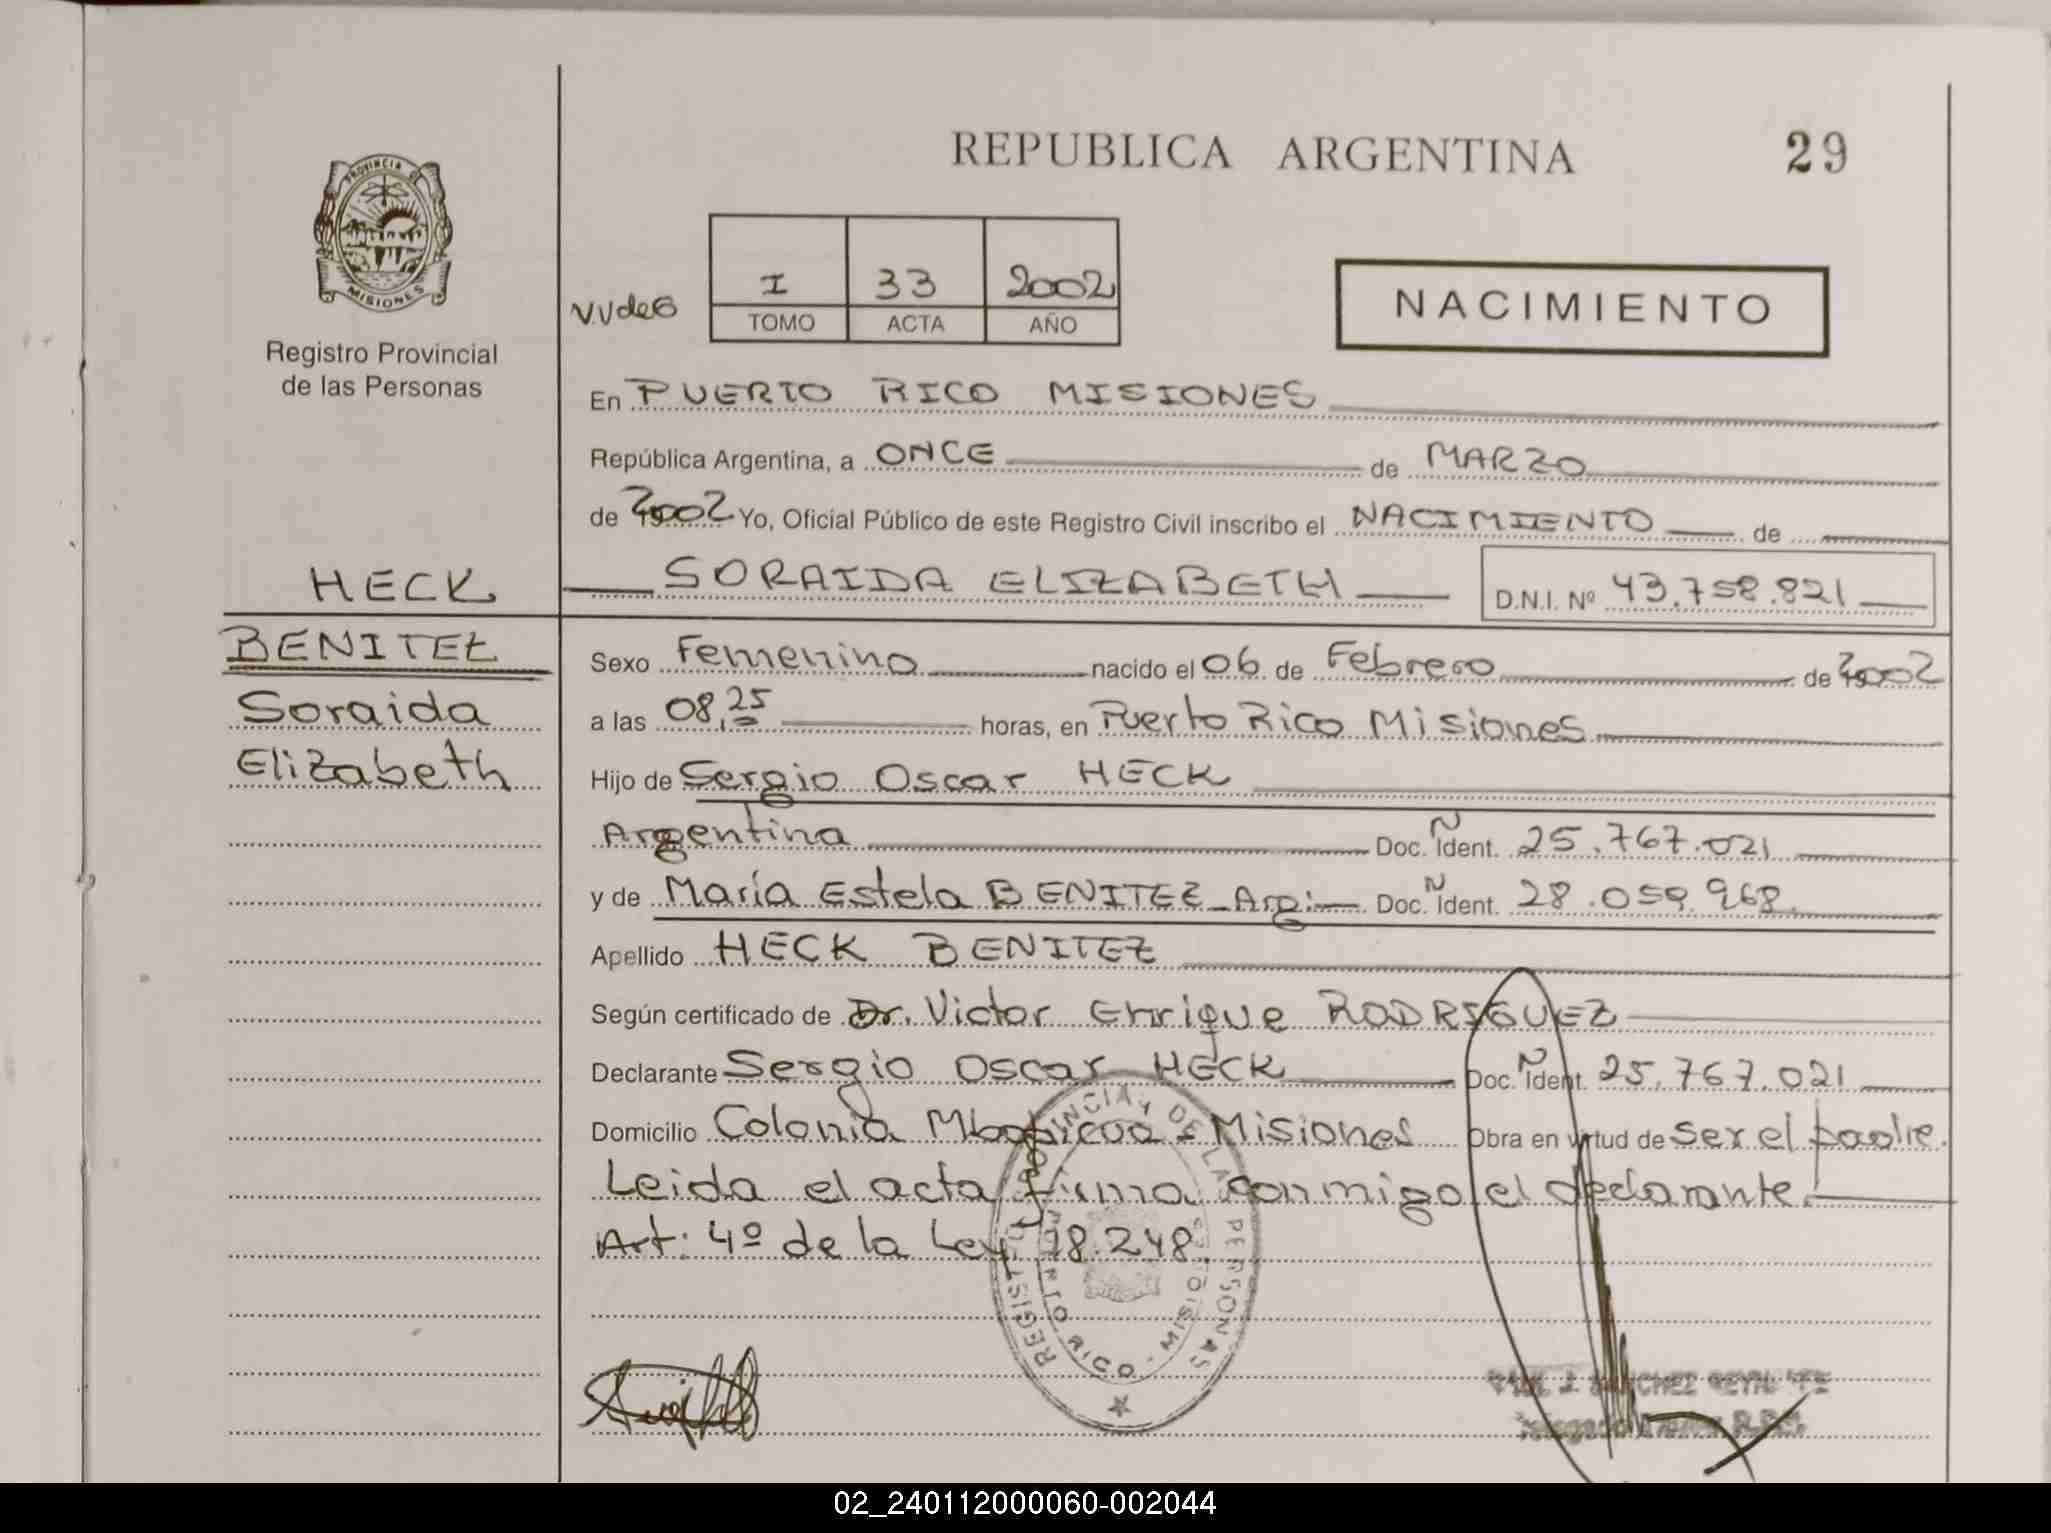 REPUBLICA ARGENTINA 29
PROVINCIA DE MISIONES
Registro Provincial
de las Personas
V.V de 6
I 33 2002
TOMO ACTA AÑO
NACIMIENTO
En PUERTO RICO MISIONES
República Argentina, a ONCE de MARZO
de 2002 Yo, Oficial Público de este Registro Civil inscribo el NACIMIENTO de
HECK SORAIDA ELIZABETH D.N.I. Nº 43.758.821
BENITEZ
Soraida
Elizabeth
Sexo Femenino nacido el 06 de Febrero de 2002
a las 08,25 horas, en Puerto Rico Misiones
Hijo de Sergio Oscar HECK
Argentina Doc. N Ident. 25.767.021
y de María Estela BENITEZ - Arg: Doc. N Ident. 28.059.968.
Apellido HECK BENITEZ
Según certificado de Dr. Victor Enrique RODRIGUEZ
Declarante Sergio Oscar HECK Doc. N Ident. 25.767.021
Domicilio Colonia Mbopicua - Misiones Obra en virtud de ser el padre.
Leida el acta firma conmigo el declarante.
Art: 4º de la Ley 18.248
REGISTRO PROVINCIAL DE LAS PERSONAS
PUERTO RICO - MISIONES
J. SANCHEZ
02_240112000060-002044